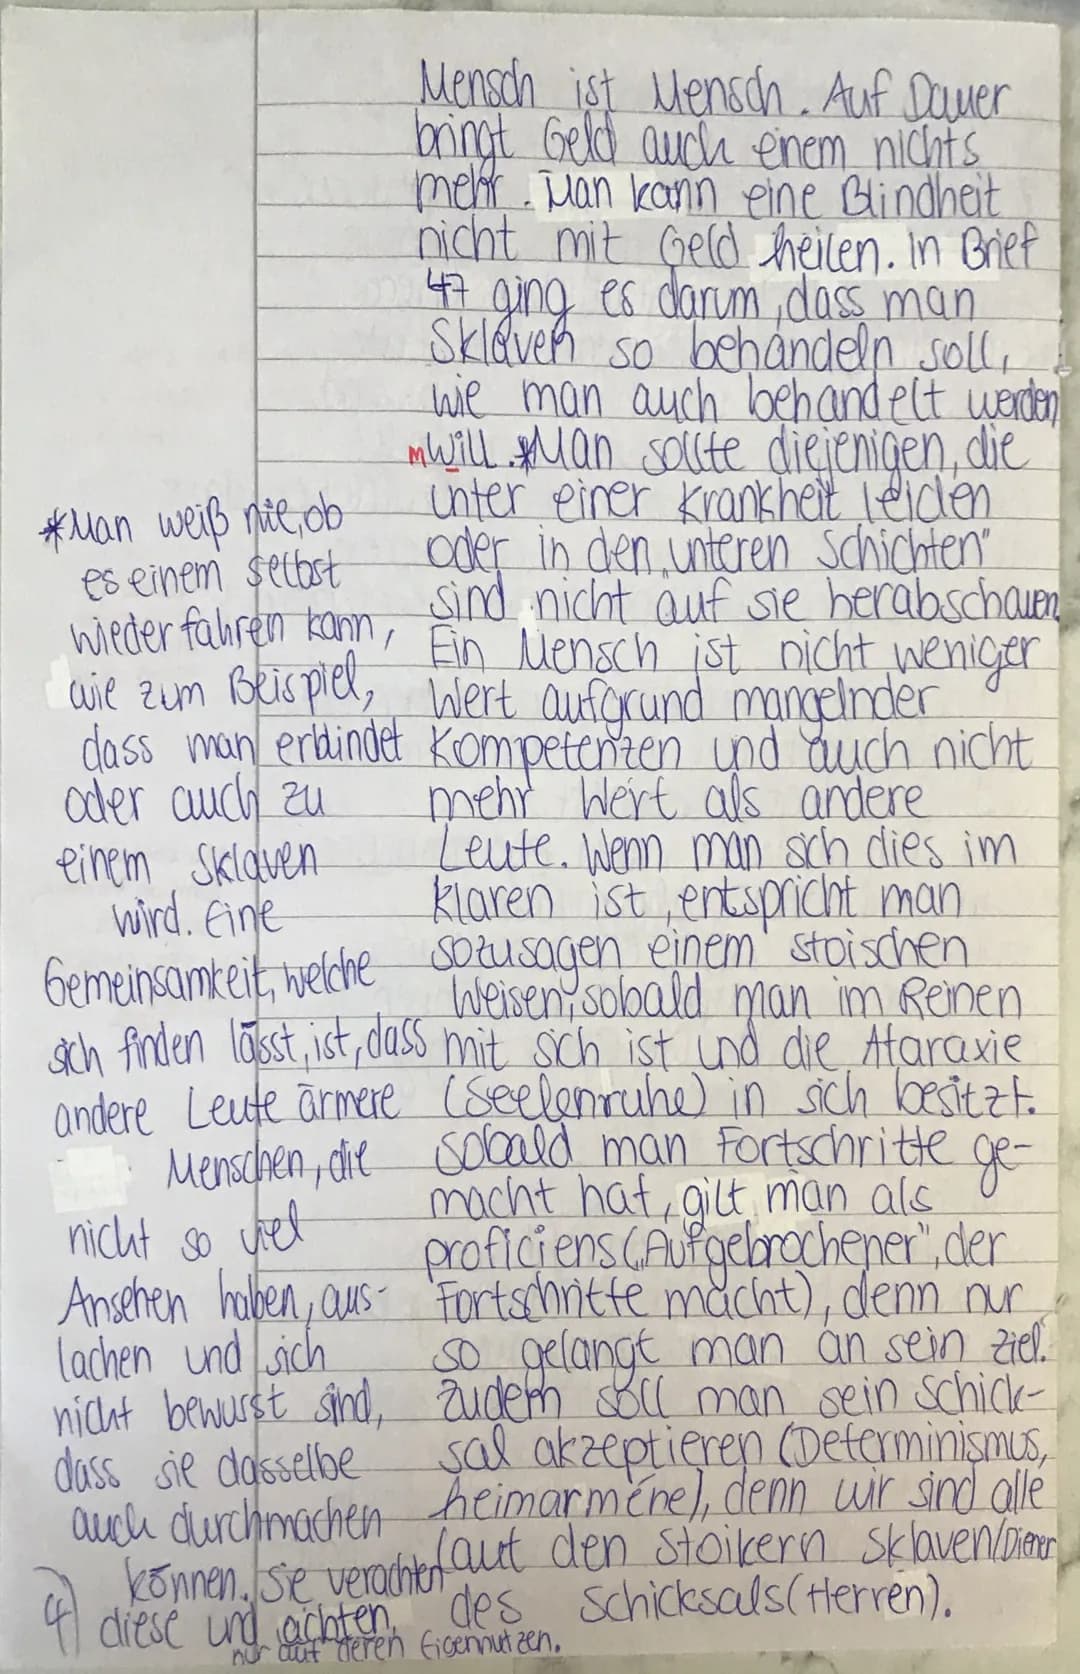 Mensch ist Mensch. Auf Dauer
bringt Geld auch einem nichts
mehr. Man kann eine Blindheit
nicht mit Geld heilen. In Brief
47 ging es darum, dass man
Sklaven so behandeln soll,
wie man auch behandelt werden
M will.*Man sollte diejenigen, die
unter einer Krankheit leiden
oder in den „unteren Schichten"
sind nicht auf sie herabschauen.
Ein Mensch ist nicht weniger
Wert aufgrund mangelnder
Kompetenzen und auch nicht
mehr Wert als andere
Leute. Wenn man sich dies im
klaren ist, entspricht man
sozusagen einem stoischen
Weisen, sobald man im Reinen
mit sich ist und die Ataraxie
(Seelenruhe) in sich besitzt.
Sobald man Fortschritte ge-
macht hat, gilt man als
proficiens („Aufgebrochener", der
Fortschritte macht), denn nur
so gelangt man an sein Ziel.
Zudem soll man sein Schick-
sal akzeptieren (Determinismus,
heimarméne), denn wir sind alle
laut den Stoikern Sklaven/Diener
des Schicksals (Herren).
*Man weiß nie, ob
es einem selbst
wiederfahren kann,
wie zum Beispiel,
dass man erblindet
oder auch zu
einem Sklaven
wird. Eine
Gemeinsamkeit, welche
sich finden lässt, ist, dass
andere Leute ärmere
Menschen, die
nicht so viel
Ansehen haben, aus-
lachen und sich
nicht bewusst sind,
dass sie dasselbe
auch durchmachen
können. Sie verachten
4) diese und achten
nur auf deren Eigennutzen.